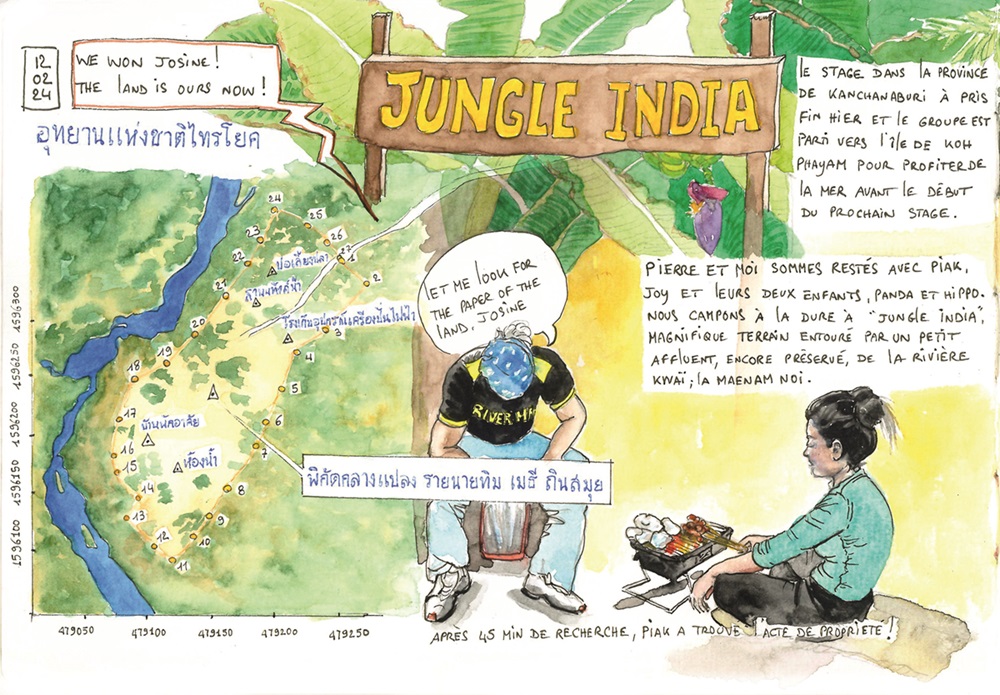 12
02
24
WE WON JOSINE!
THE LAND IS OURS NOW!
อุทยานแห่งชาติไทรโยค
JUNGLE INDIA
LE STAGE DANS LA PROVINCE
DE KANCHANABURI À PRIS
FIN HIER ET LE GROUPE EST
PARTI VERS L'ÎLE DE KOH
PHAYAM POUR PROFITER DE
LA MER AVANT LE DÉBUT
DU PROCHAIN STAGE.
PIERRE ET MOI SOMMES RESTÉS AVEC PIAK,
JOY ET LEURS DEUX ENFANTS, PANDA ET HIPPO.
NOUS CAMPONS À LA DURE À "JUNGLE INDIA",
MAGNIFIQUE TERRAIN ENTOURÉ PAR UN PETIT
AFFLUENT, ENCORE PRÉSERVÉ, DE LA RIVIÈRE
KWAÏ; LA MAENAM NOI.
LET ME LOOK FOR
THE PAPER OF THE
LAND, JOSINE
24
25
23
26
27
1
22
2
21
3
20
4
19
18
5
17
6
16
7
15
14
8
13
9
12
10
11
บ่อเลี้ยงปลา
โรงเก็บอุปกรณ์เครื่องปั่นไฟฟ้า
บ้านพักอาศัย
ห้องน้ำ
พิกัดกลางแปลง รายนายทิม เมธี ถิ่นสมุย
RIVER
1596300
1596250
1596200
1596150
1596100
479050
479100
479150
479200
479250
APRÈS 45 MIN DE RECHERCHE, PIAK A TROUVÉ L'ACTE DE PROPRIÉTÉ!